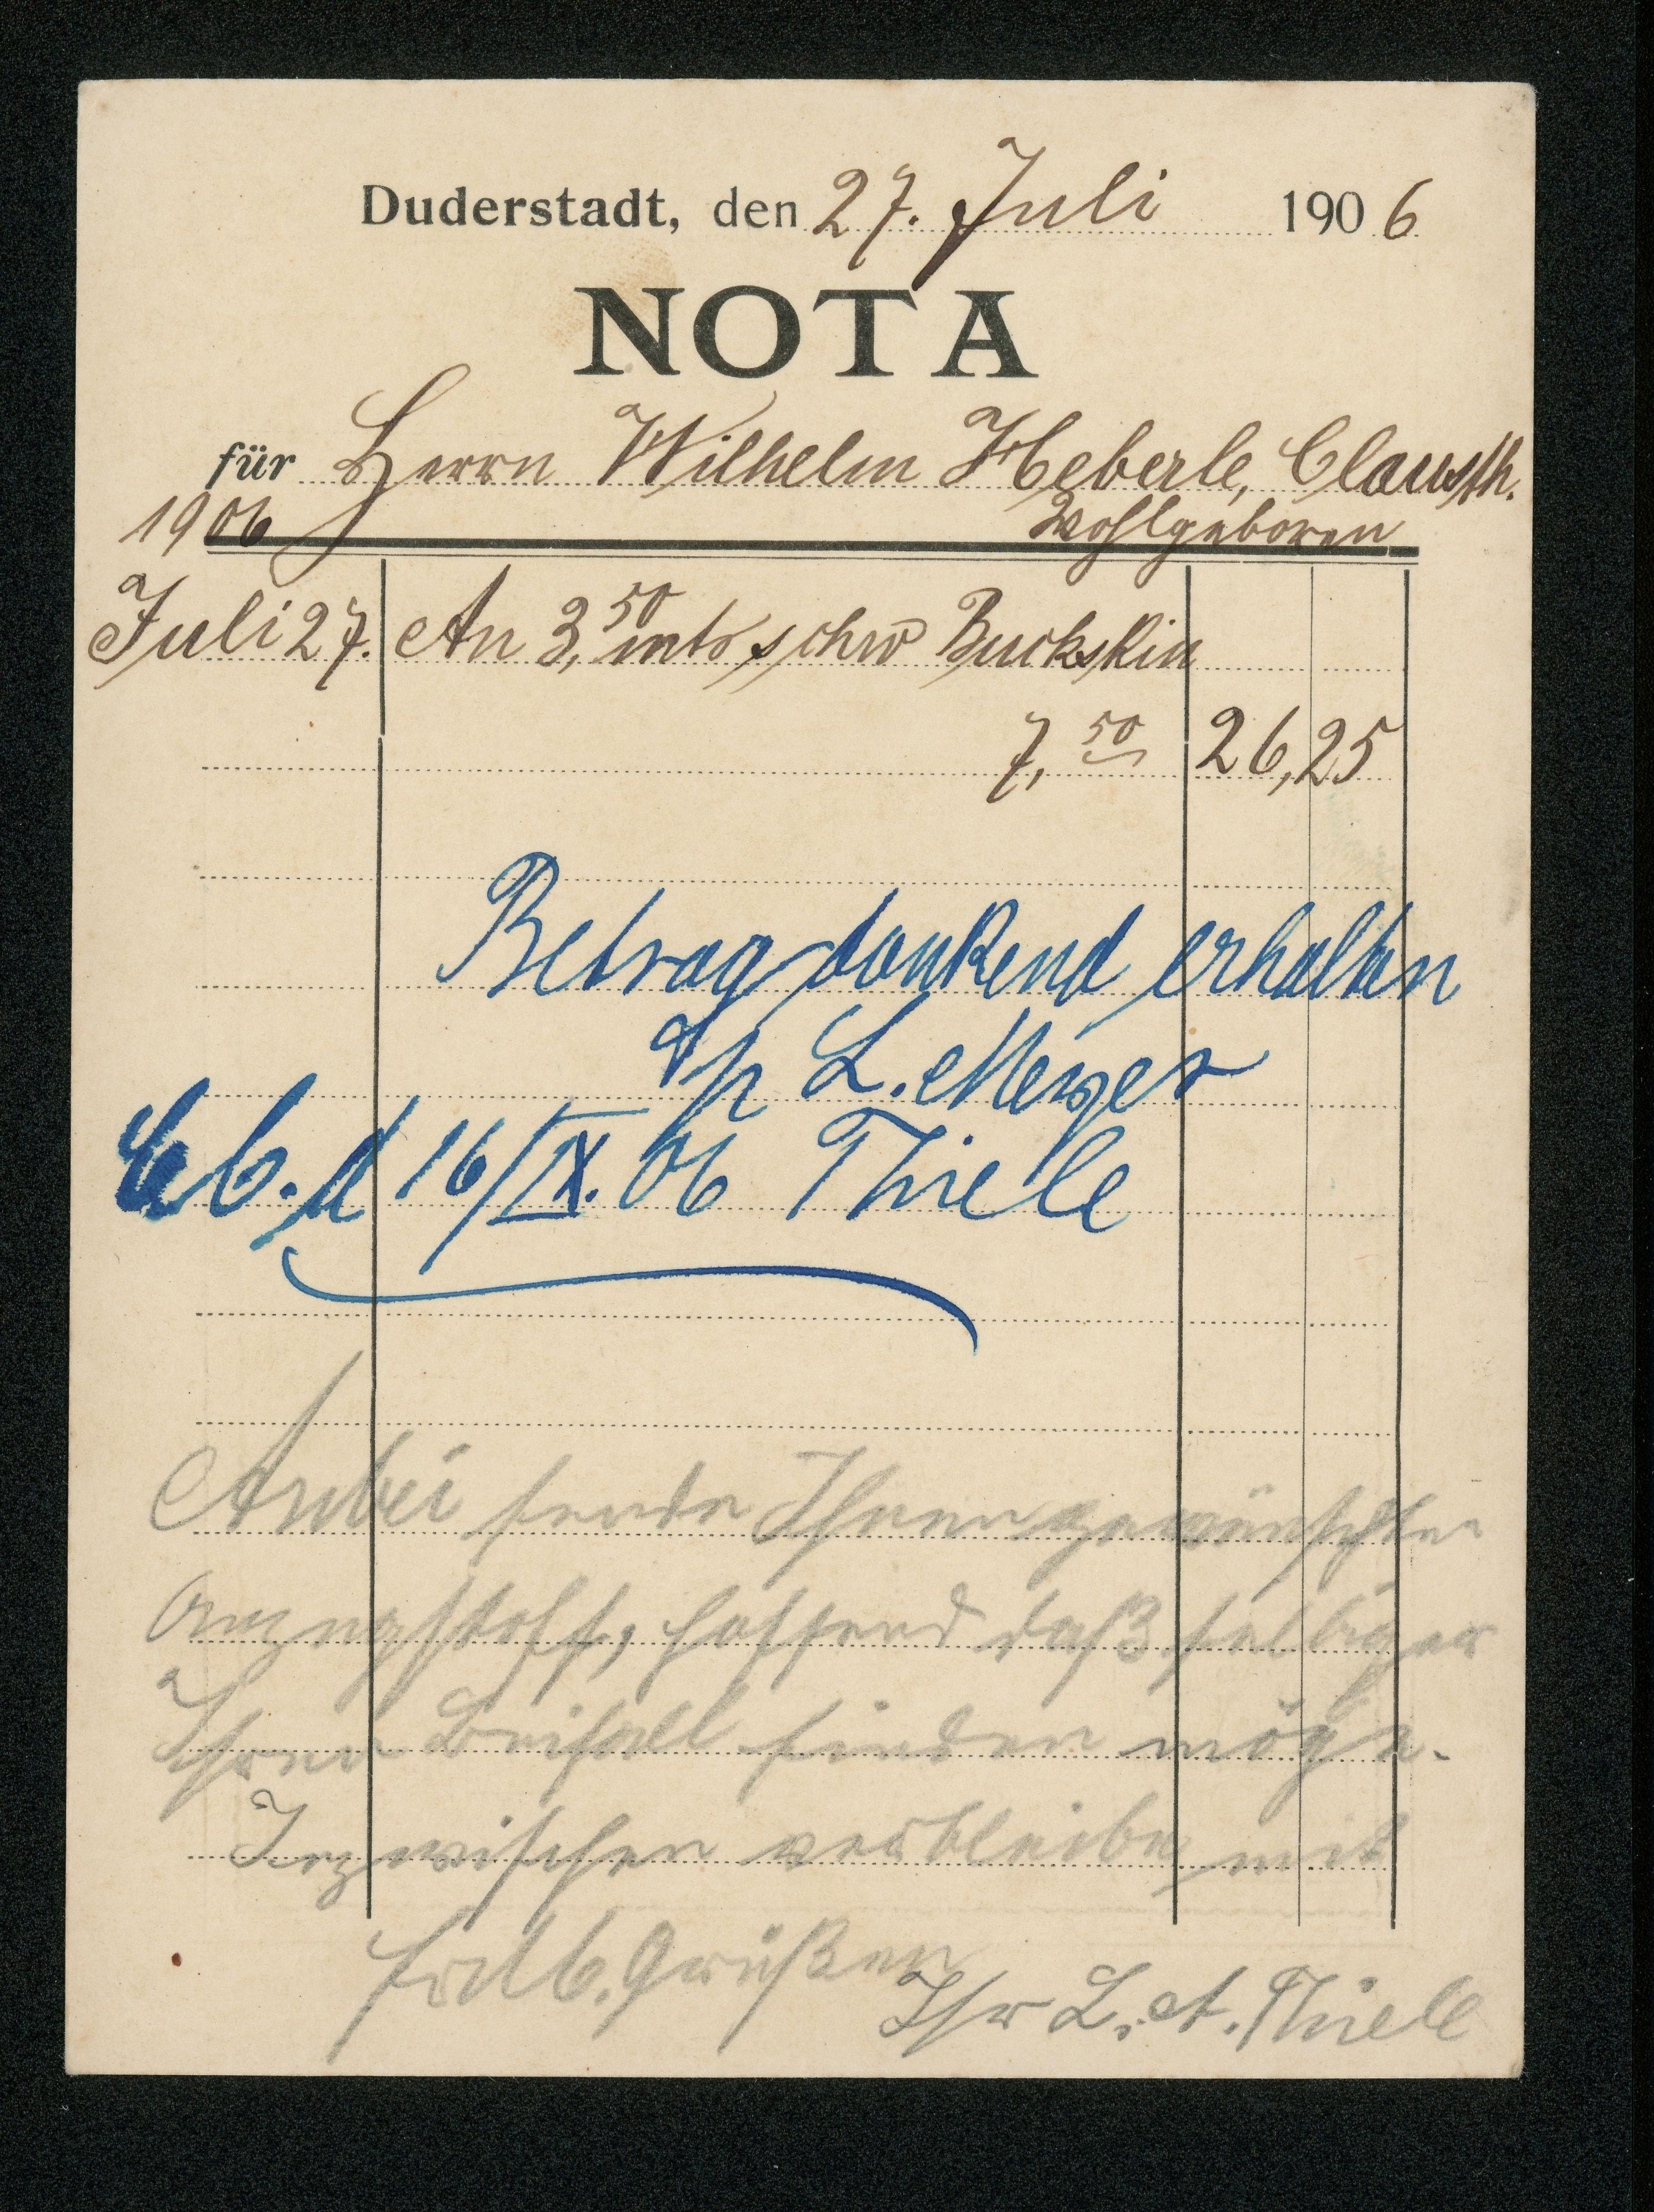 Duderstadt, den 27. Juli 1906
NOTA
für Herrn Wilhelm Heberle, Clausth.
1906 Wohlgeboren
Juli 27. An 3,50 mtr schw Buckskin
7,50 26,25
Betrag dankend erhalten
L. Meyer
d 16/IX. 06 Thiele
Anbei sende Ihnen gewünschten
Anzugstoff, hoffend daß selbiger
Ihren Beifall finden möge.
Inzwischen verbleibe mit
frdl. Grüßen
Ihr L. A. Thiele